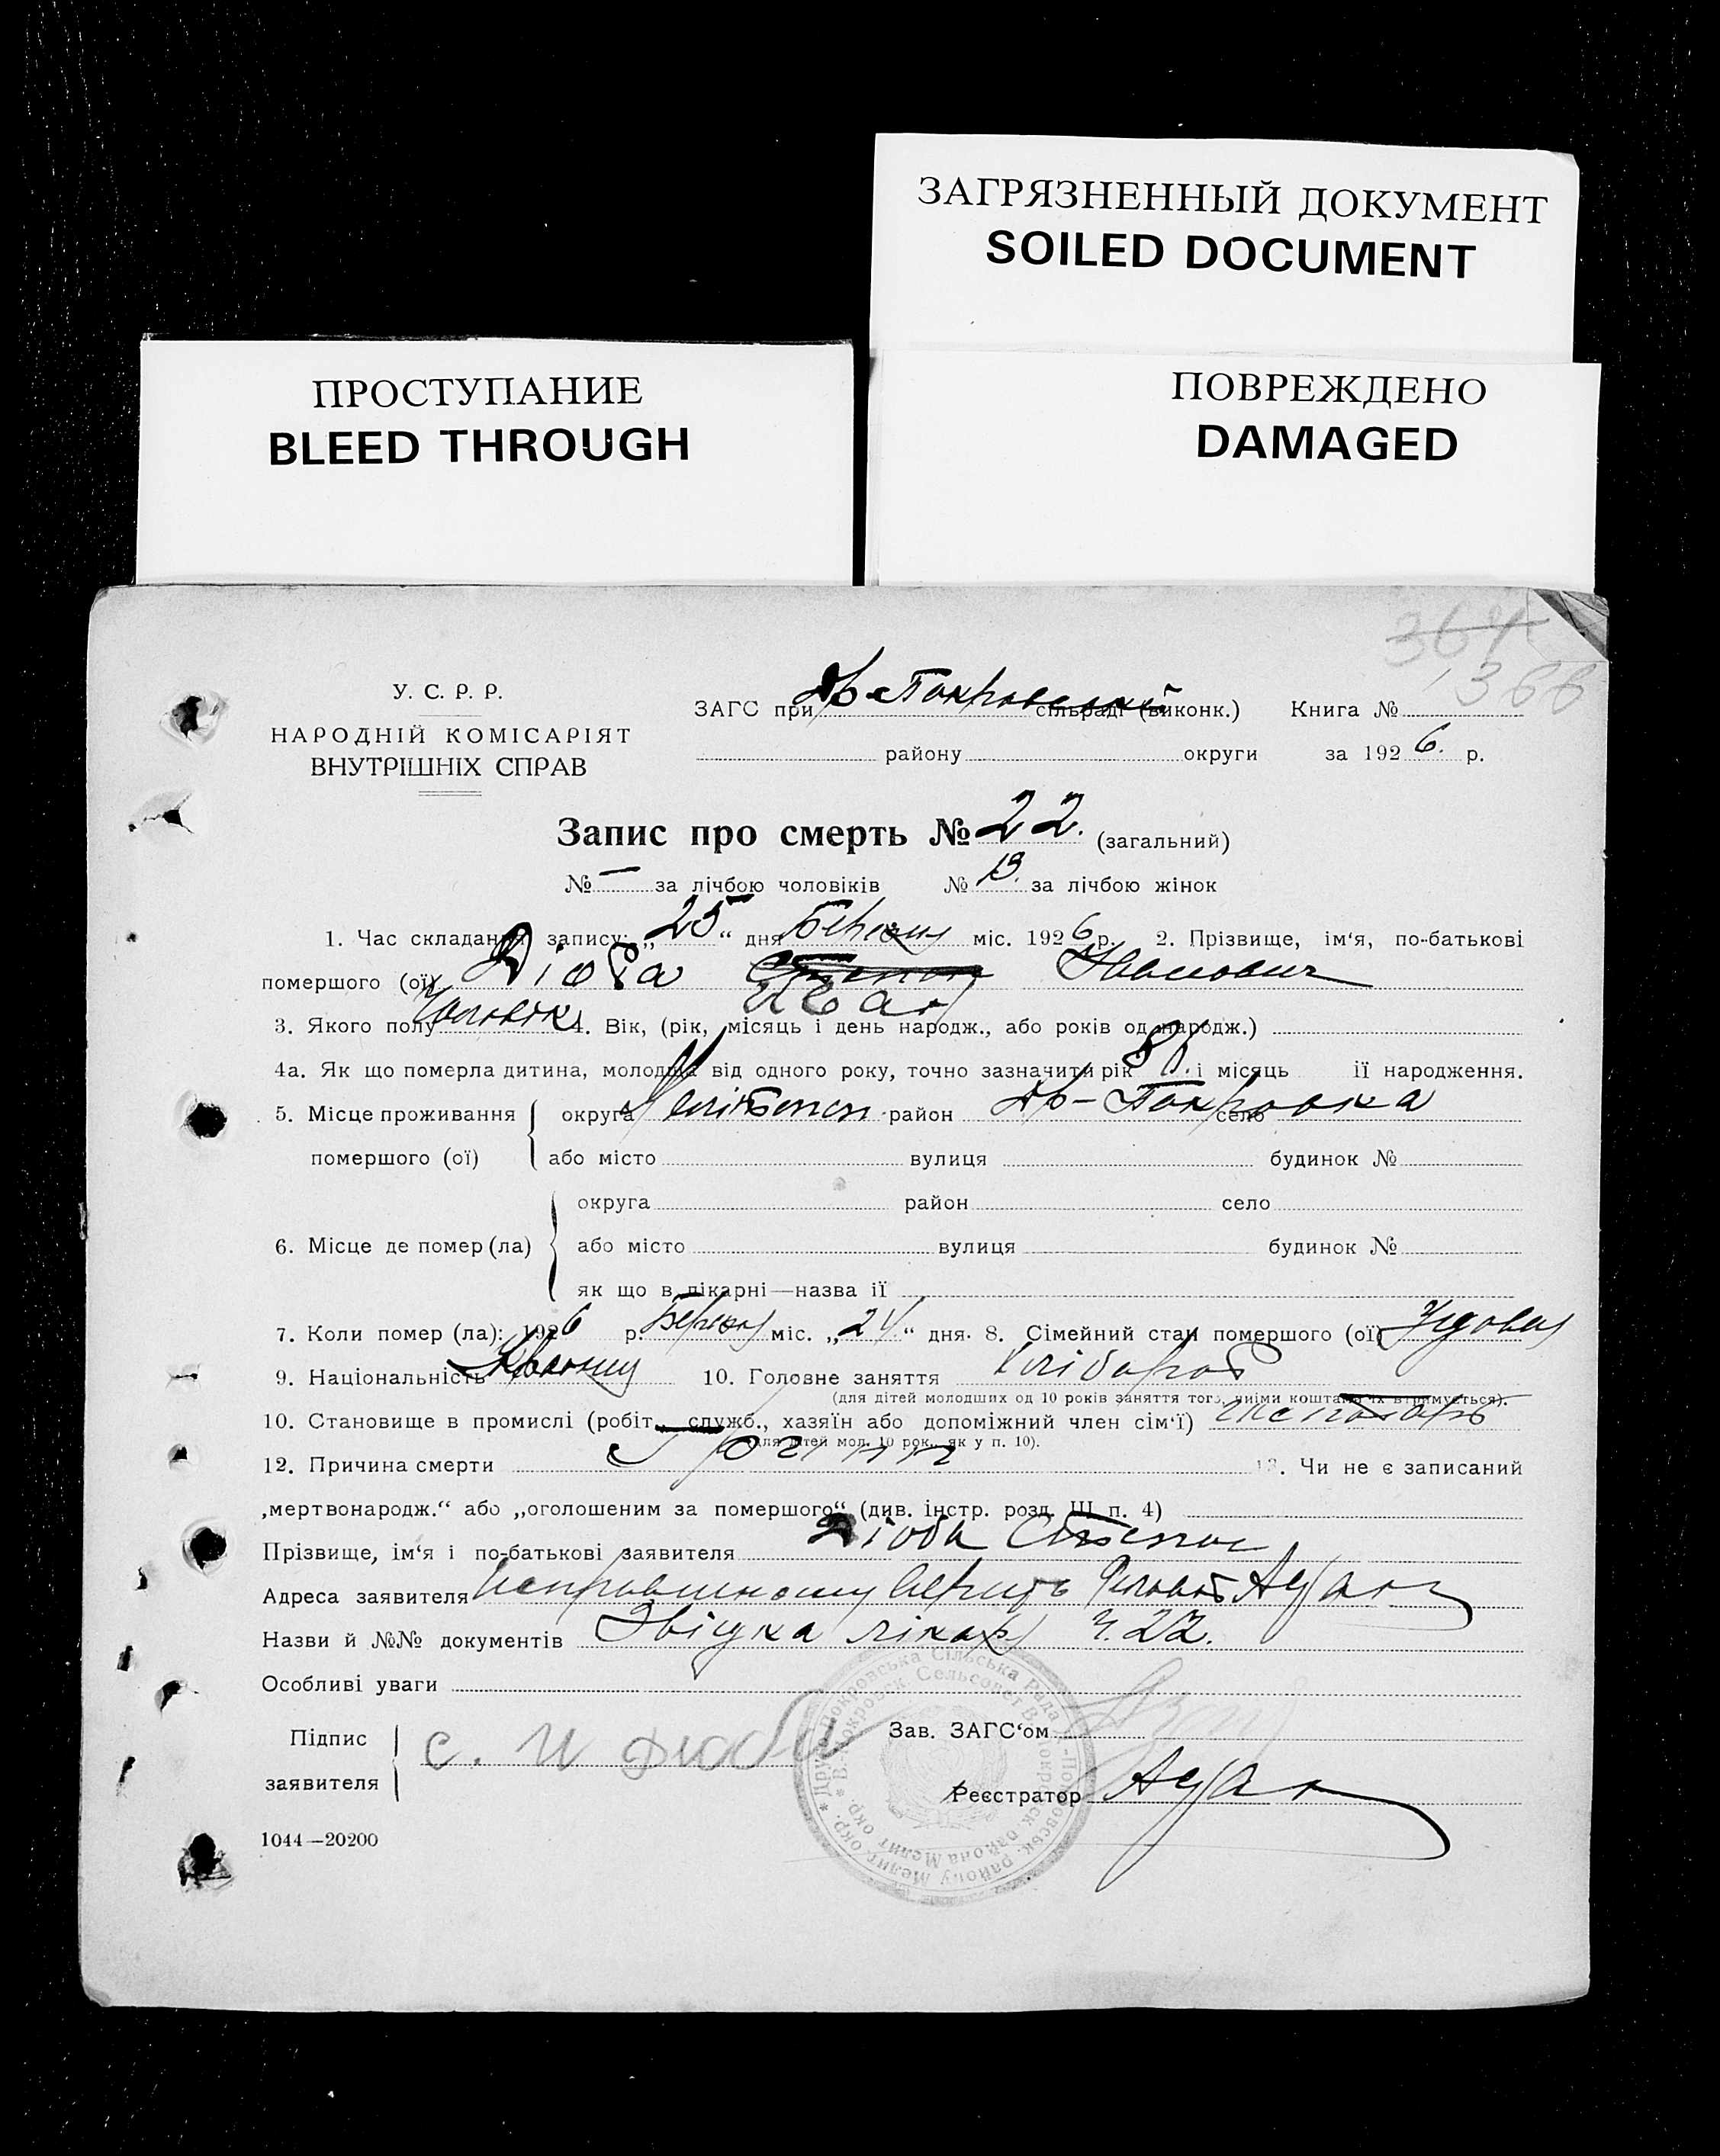 ЗАГРЯЗНЕННЫЙ ДОКУМЕНТ
SOILED DOCUMENT
ПРОСТУПАНИЕ
BLEED THROUGH
ПОВРЕЖДЕНО
DAMAGED
364
366
У. С. Р. Р.
НАРОДНІЙ КОМІСАРІЯТ
ВНУТРІШНІХ СПРАВ
ЗАГС при Др-Покровській сільраді (виконк.) Книга №
району округи за 1926. р.
Запис про смерть № 22. (загальний)
№ — за лічбою чоловіків № 13. за лічбою жінок
1. Час складання запису: „25“ дня Березня міс. 1926 р. 2. Прізвище, ім‘я, по-батькові
помершого (ої) Дюба Степан Іванович
Іван
3. Якого полу Чоловік 4. Вік, (рік, місяць і день народж., або років од народж.)
4а. Як що померла дитина, молодша від одного року, точно зазначити рік і місяць її народження.
5. Місце проживання округа район Др-Покровка село
помершого (ої) або місто вулиця будинок №
округа район село
6. Місце де помер (ла) або місто вулиця будинок №
як що в лікарні—назва її
7. Коли помер (ла): 1926 р. Березня міс. „24“ дня. 8. Сімейний стан помершого (ої) Удовец
9. Національність 10. Головне заняття Хлібороб
(для дітей молодших од 10 років заняття того, чиїми коштами їх втримується).
10. Становище в промислі (робіт., служб., хазяїн або допоміжний член сім‘ї)
(для дітей мол. 10 рок., як у п. 10).
12. Причина смерти 13. Чи не є записаний
„мертвонародж.“ або „оголошеним за помершого“ (див. інстр. розд. III п. 4)
Прізвище, ім‘я і по-батькові заявителя Дюба Степан
Адреса заявителя
Назви й №№ документів Звідка лікаря Ч. 22.
Особливі уваги
Підпис
заявителя
С. И Дюба
Зав. ЗАГС‘ом
Реєстратор
1044—20200